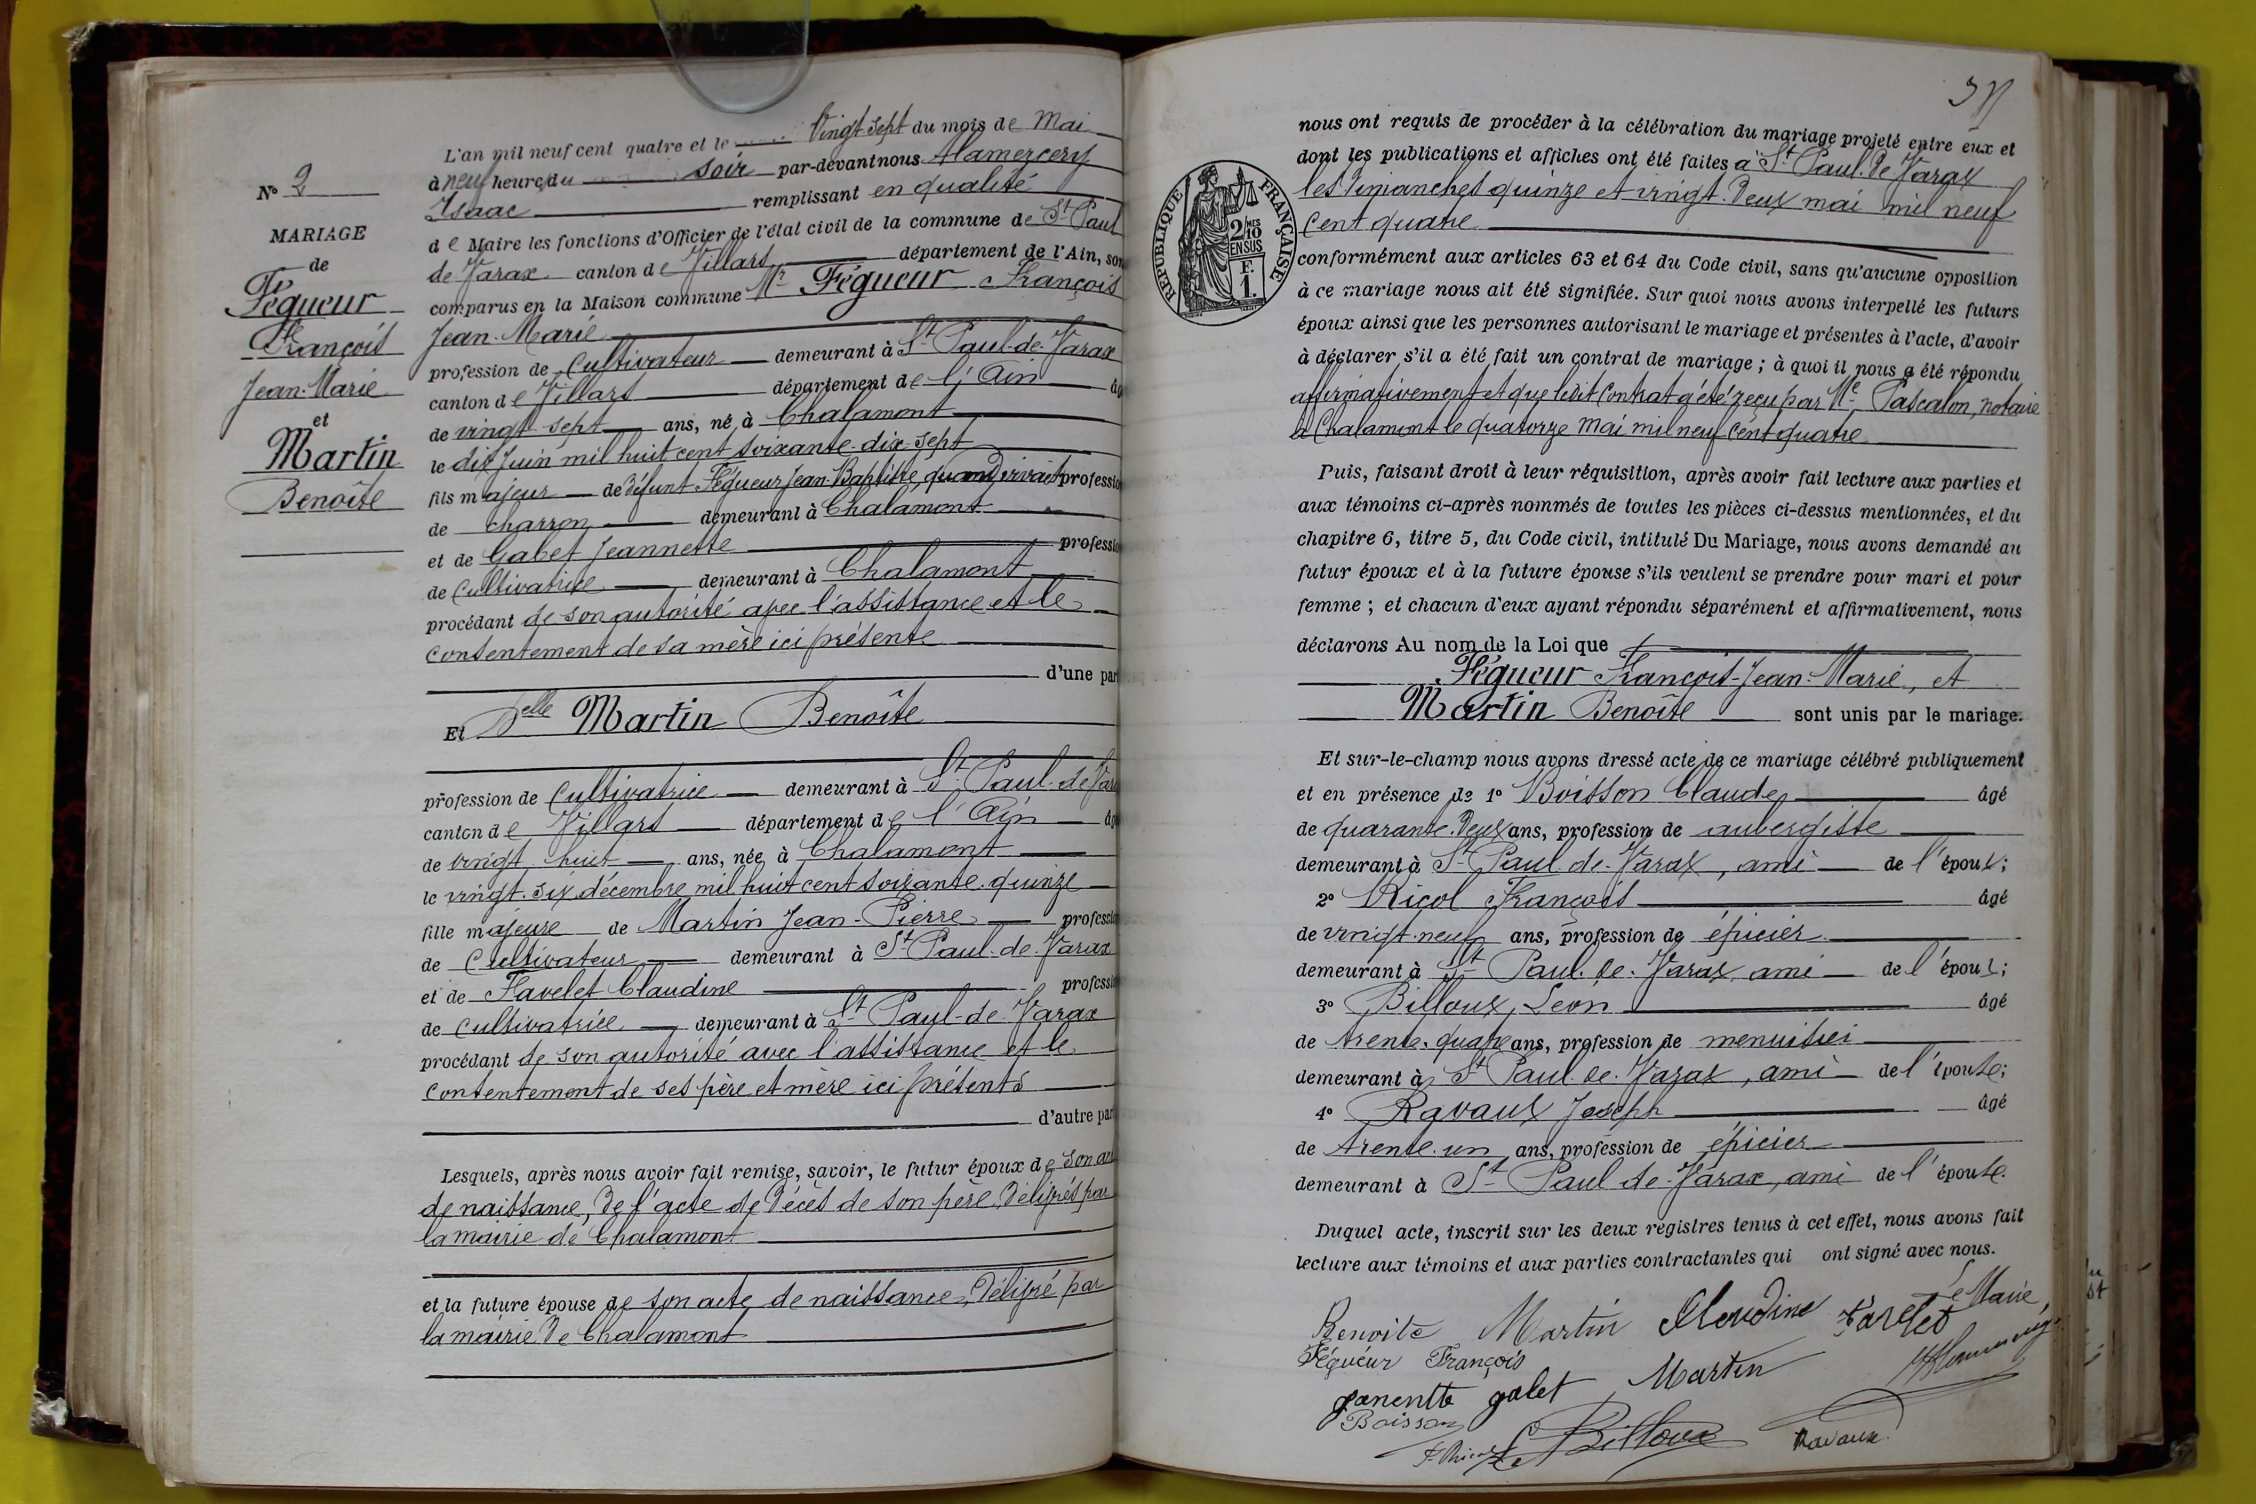 N° 2
MARIAGE
de
Féqueur
François
Jean-Marie
et
Martin
Benoîte
L'an mil neuf cent quatre et le vingt sept du mois de Mai
à neuf heures du soir par-devant nous Alamercery
Isaac remplissant en qualité
de Maire les fonctions d'Officier de l'état civil de la commune de St Paul
de Varax canton de Villars département de l'Ain, son
comparus en la Maison commune Mr Féqueur François
Jean-Marie
profession de cultivateur demeurant à St Paul-de-Varax
canton de Villars département de l'Ain âg
de vingt-sept ans, né à Chalamont
le dix Juin mil huit cent soixante-dix-sept
fils majeur de défunt Féqueur Jean-Baptiste, quand vivait professio
de charron demeurant à Chalamont
et de Gabet Jeannette professio
de cultivatrice demeurant à Chalamont
procédant de son autorité avec l'assistance et le
consentement de sa mère ici présente
d'une par
Et Delle Martin Benoîte
profession de cultivatrice demeurant à St Paul-de-Vara
canton de Villars département de l'Ain âg
de vingt-huit ans, née à Chalamont
le vingt-six décembre mil huit cent soixante-quinze
fille majeure de Martin Jean-Pierre professio
de Cultivateur demeurant à St Paul-de-Varax
et de Favelet Claudine professio
de cultivatrice demeurant à St Paul-de-Varax
procédant de son autorité avec l'assistance et le
consentement de ses père et mère ici présents
d'autre par
Lesquels, après nous avoir fait remise, savoir, le futur époux de son act
de naissance, de l'acte de décès de son père, délivrés par
la mairie de Chalamont
et la future épouse de son acte de naissance, délivré par
la mairie de Chalamont
RÉPUBLIQUE FRANÇAISE
2/10 MES
EN SUS
F.
1.
nous ont requis de procéder à la célébration du mariage projeté entre eux et
dont les publications et affiches ont été faites à St Paul-de-Varax
les dimanches quinze et vingt-deux mai mil neuf
cent quatre
conformément aux articles 63 et 64 du Code civil, sans qu'aucune opposition
à ce mariage nous ait été signifiée. Sur quoi nous avons interpellé les futurs
époux ainsi que les personnes autorisant le mariage et présentes à l'acte, d'avoir
à déclarer s'il a été fait un contrat de mariage ; à quoi il nous a été répondu
affirmativement et que ledit contrat a été reçu par Me Pascalon, notaire
à Chalamont le quatorze Mai mil neuf cent quatre
Puis, faisant droit à leur réquisition, après avoir fait lecture aux parties et
aux témoins ci-après nommés de toutes les pièces ci-dessus mentionnées, et du
chapitre 6, titre 5, du Code civil, intitulé Du Mariage, nous avons demandé au
futur époux et à la future épouse s'ils veulent se prendre pour mari et pour
femme ; et chacun d'eux ayant répondu séparément et affirmativement, nous
déclarons Au nom de la Loi que
Féqueur François-Jean-Marie, et
Martin Benoîte sont unis par le mariage.
Et sur-le-champ nous avons dressé acte de ce mariage célébré publiquement
et en présence de 1° Boisson Claude âgé
de quarante-deux ans, profession de aubergiste
demeurant à St Paul-de-Varax, ami de l'époux;
2° Ricol François âgé
de vingt-neuf ans, profession de épicier
demeurant à St Paul-de-Varax, ami de l'époux;
3° Billoux, Léon âgé
de trente-quatre ans, profession de menuisier
demeurant à St Paul-de-Varax, ami de l'épouse;
4° Ravaux Joseph âgé
de trente-un ans, profession de épicier
demeurant à St Paul-de-Varax, ami de l'épouse.
Duquel acte, inscrit sur les deux registres tenus à cet effet, nous avons fait
lecture aux témoins et aux parties contractantes qui ont signé avec nous.
Benoite Martin Claudine Favelet Le Maire,
Féqueur François
Janentte gabet Martin
Boisson
F. Ricol Billoux Ravaux